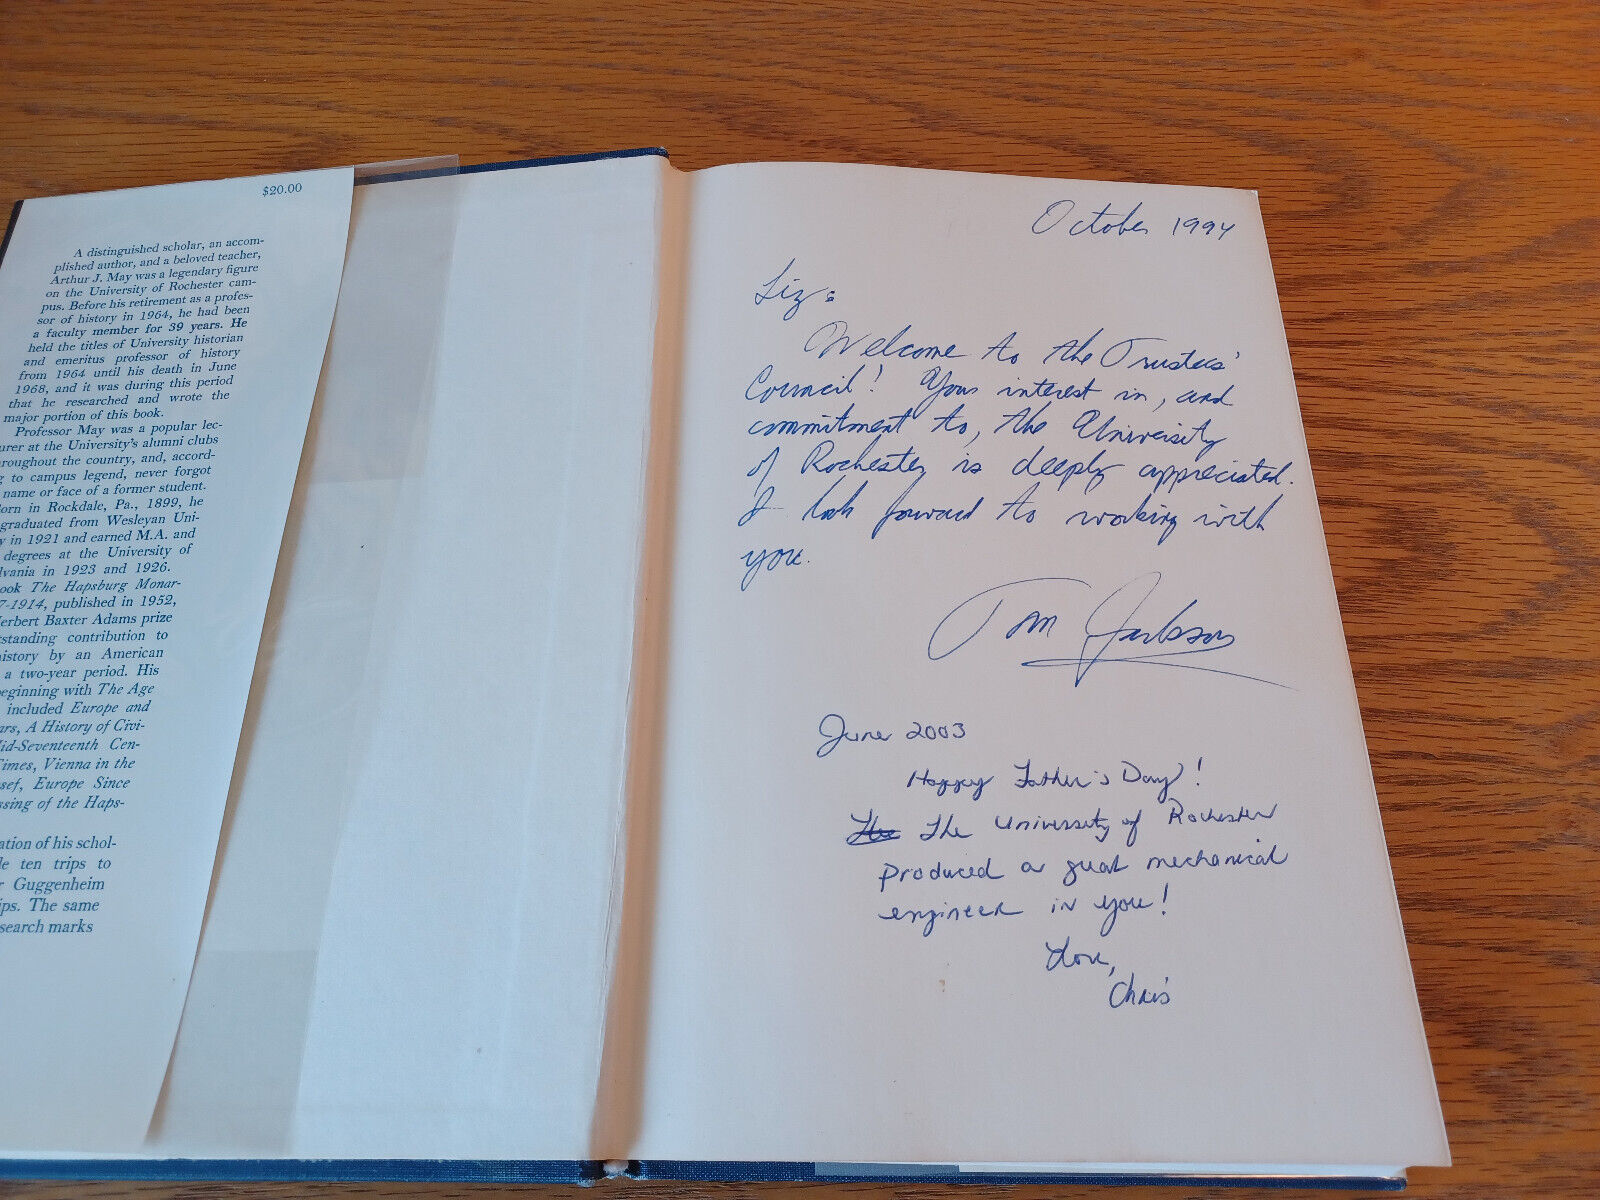 $20.00
A distinguished scholar, an accom-
plished author, and a beloved teacher,
Arthur J. May was a legendary figure
on the University of Rochester cam-
pus. Before his retirement as a profes-
sor of history in 1964, he had been
a faculty member for 39 years. He
held the titles of University historian
and emeritus professor of history
from 1964 until his death in June
1968, and it was during this period
that he researched and wrote the
major portion of this book.
Professor May was a popular lec-
urer at the University's alumni clubs
roughout the country, and, accord-
g to campus legend, never forgot
name or face of a former student.
orn in Rockdale, Pa., 1899, he
graduated from Wesleyan Uni-
y in 1921 and earned M.A. and
degrees at the University of
lvania in 1923 and 1926.
ook The Hapsburg Monar-
7-1914, published in 1952,
erbert Baxter Adams prize
tstanding contribution to
istory by an American
a two-year period. His
eginning with The Age
included Europe and
ars, A History of Civi-
Mid-Seventeenth Cen-
Times, Vienna in the
sef, Europe Since
ssing of the Haps-
ation of his schol-
le ten trips to
r Guggenheim
ips. The same
search marks
October 1994
Liz:
Welcome to the Trustees'
Council! Your interest in, and
commitment to, the University
of Rochester is deeply appreciated.
I look forward to working with
you.
Tom Jackson
June 2003
Happy Father's Day!
The The University of Rochester
produced a great mechanical
engineer in you!
Love,
Chris